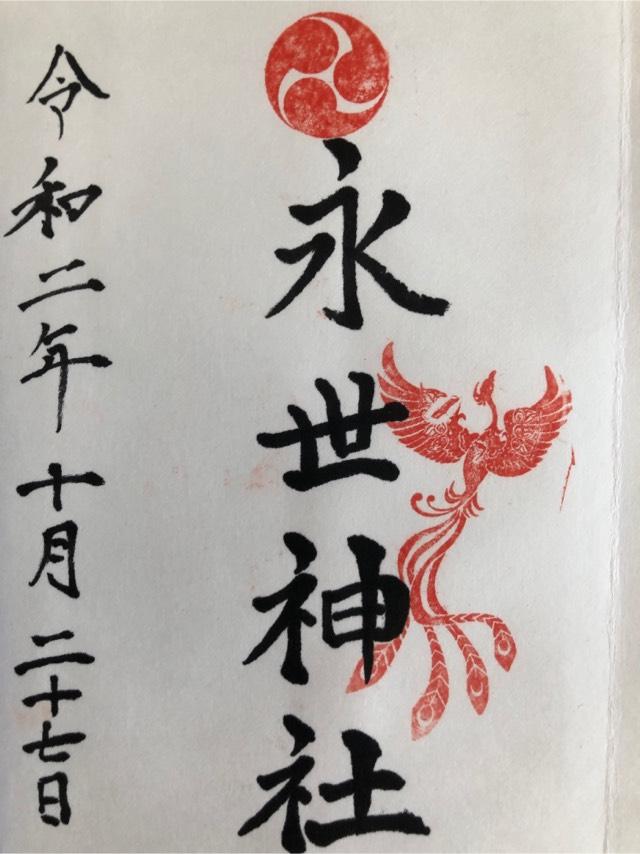 永世神社
令和二年十月二十七日